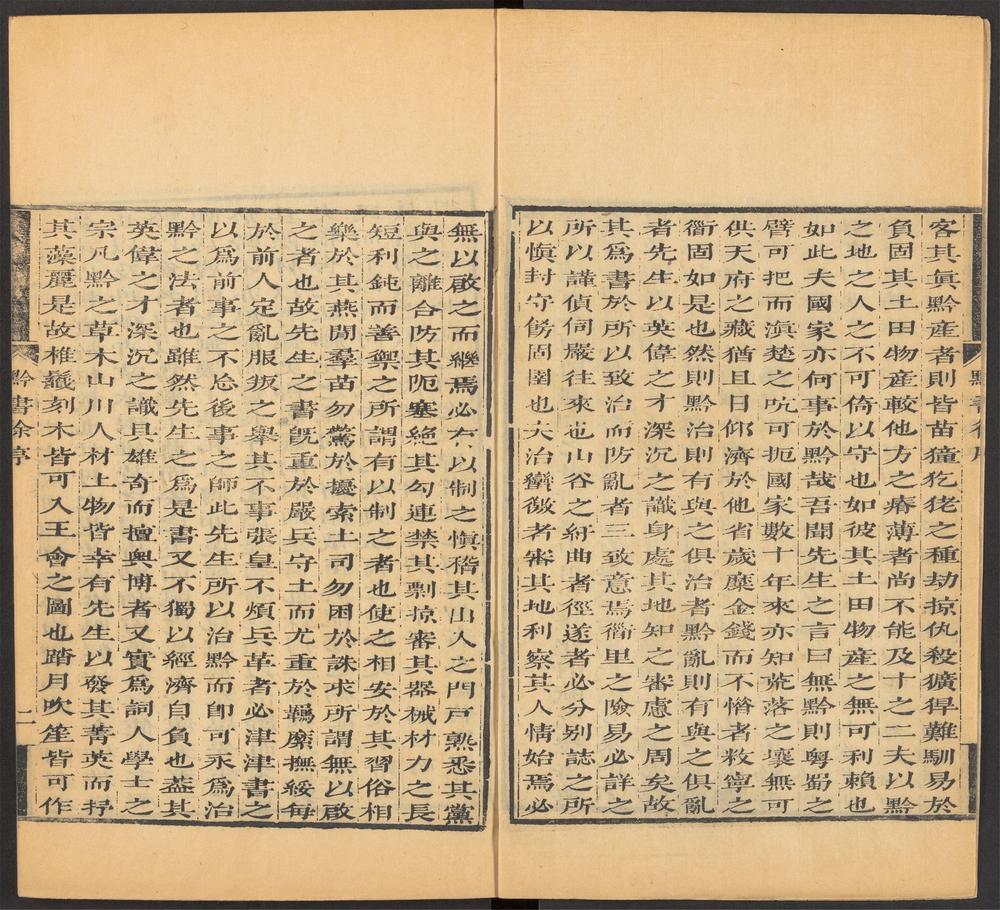 客其眞黔產者則皆苗獞犵狫之種劫掠仇殺獷猂難馴易於
負固其土田物產較他方之瘠薄者尚不能及十之二夫以黔
之地之人之不可倚以守也如彼其土田物產之無可利賴也
如此夫國家亦何事於黔哉吾聞先生之言曰無黔則粵蜀之
臂可把而滇楚之吭可扼國家數十年來亦知荒落之壤無可
供天府之藏猶且日仰濟於他省歲糜金錢而不惜者救寧之
衝固如是也然則黔治則有與之俱治者黔亂則有與之俱亂
者先生以英偉之才深沉之識身處其地知之審慮之周矣故
其爲書於所以致治而防亂者三致意焉衢里之險易必詳之
所以謹偵伺嚴往來也山谷之紆曲者徑遂者必分别誌之所
以愼封守傍固圉也夫治蠻徼者審其地利察其人情始焉必
無以啟之而繼焉必有以制之愼稽其出入之門戸熟悉其黨
與之離合防其阨塞絕其勾連禁其剽掠審其器械材力之長
短利鈍而善禦之所謂有以制之者也使之相安於其習俗相
樂於其燕閒羣苗勿驚於擾索土司勿困於誅求所謂無以啟
之者也故先生之書旣重於嚴兵守土而尤重於羈縻撫綏每
於前人定亂服叛之舉其不事張皇不煩兵革者必津津書之
以爲前事之不忘後事之師此先生所以治黔而卽可永爲治
黔之法者也雖然先生之爲是書又不獨以經濟自負也葢其
英偉之才深沉之識具雄奇而擅奧博者又實爲詞人學士之
宗凡黔之草木山川人材土物皆幸有先生以發其菁英而抒
其藻麗是故椎髻刻木皆可入王會之圖也踏月吹笙皆可作
黔書徐序
二